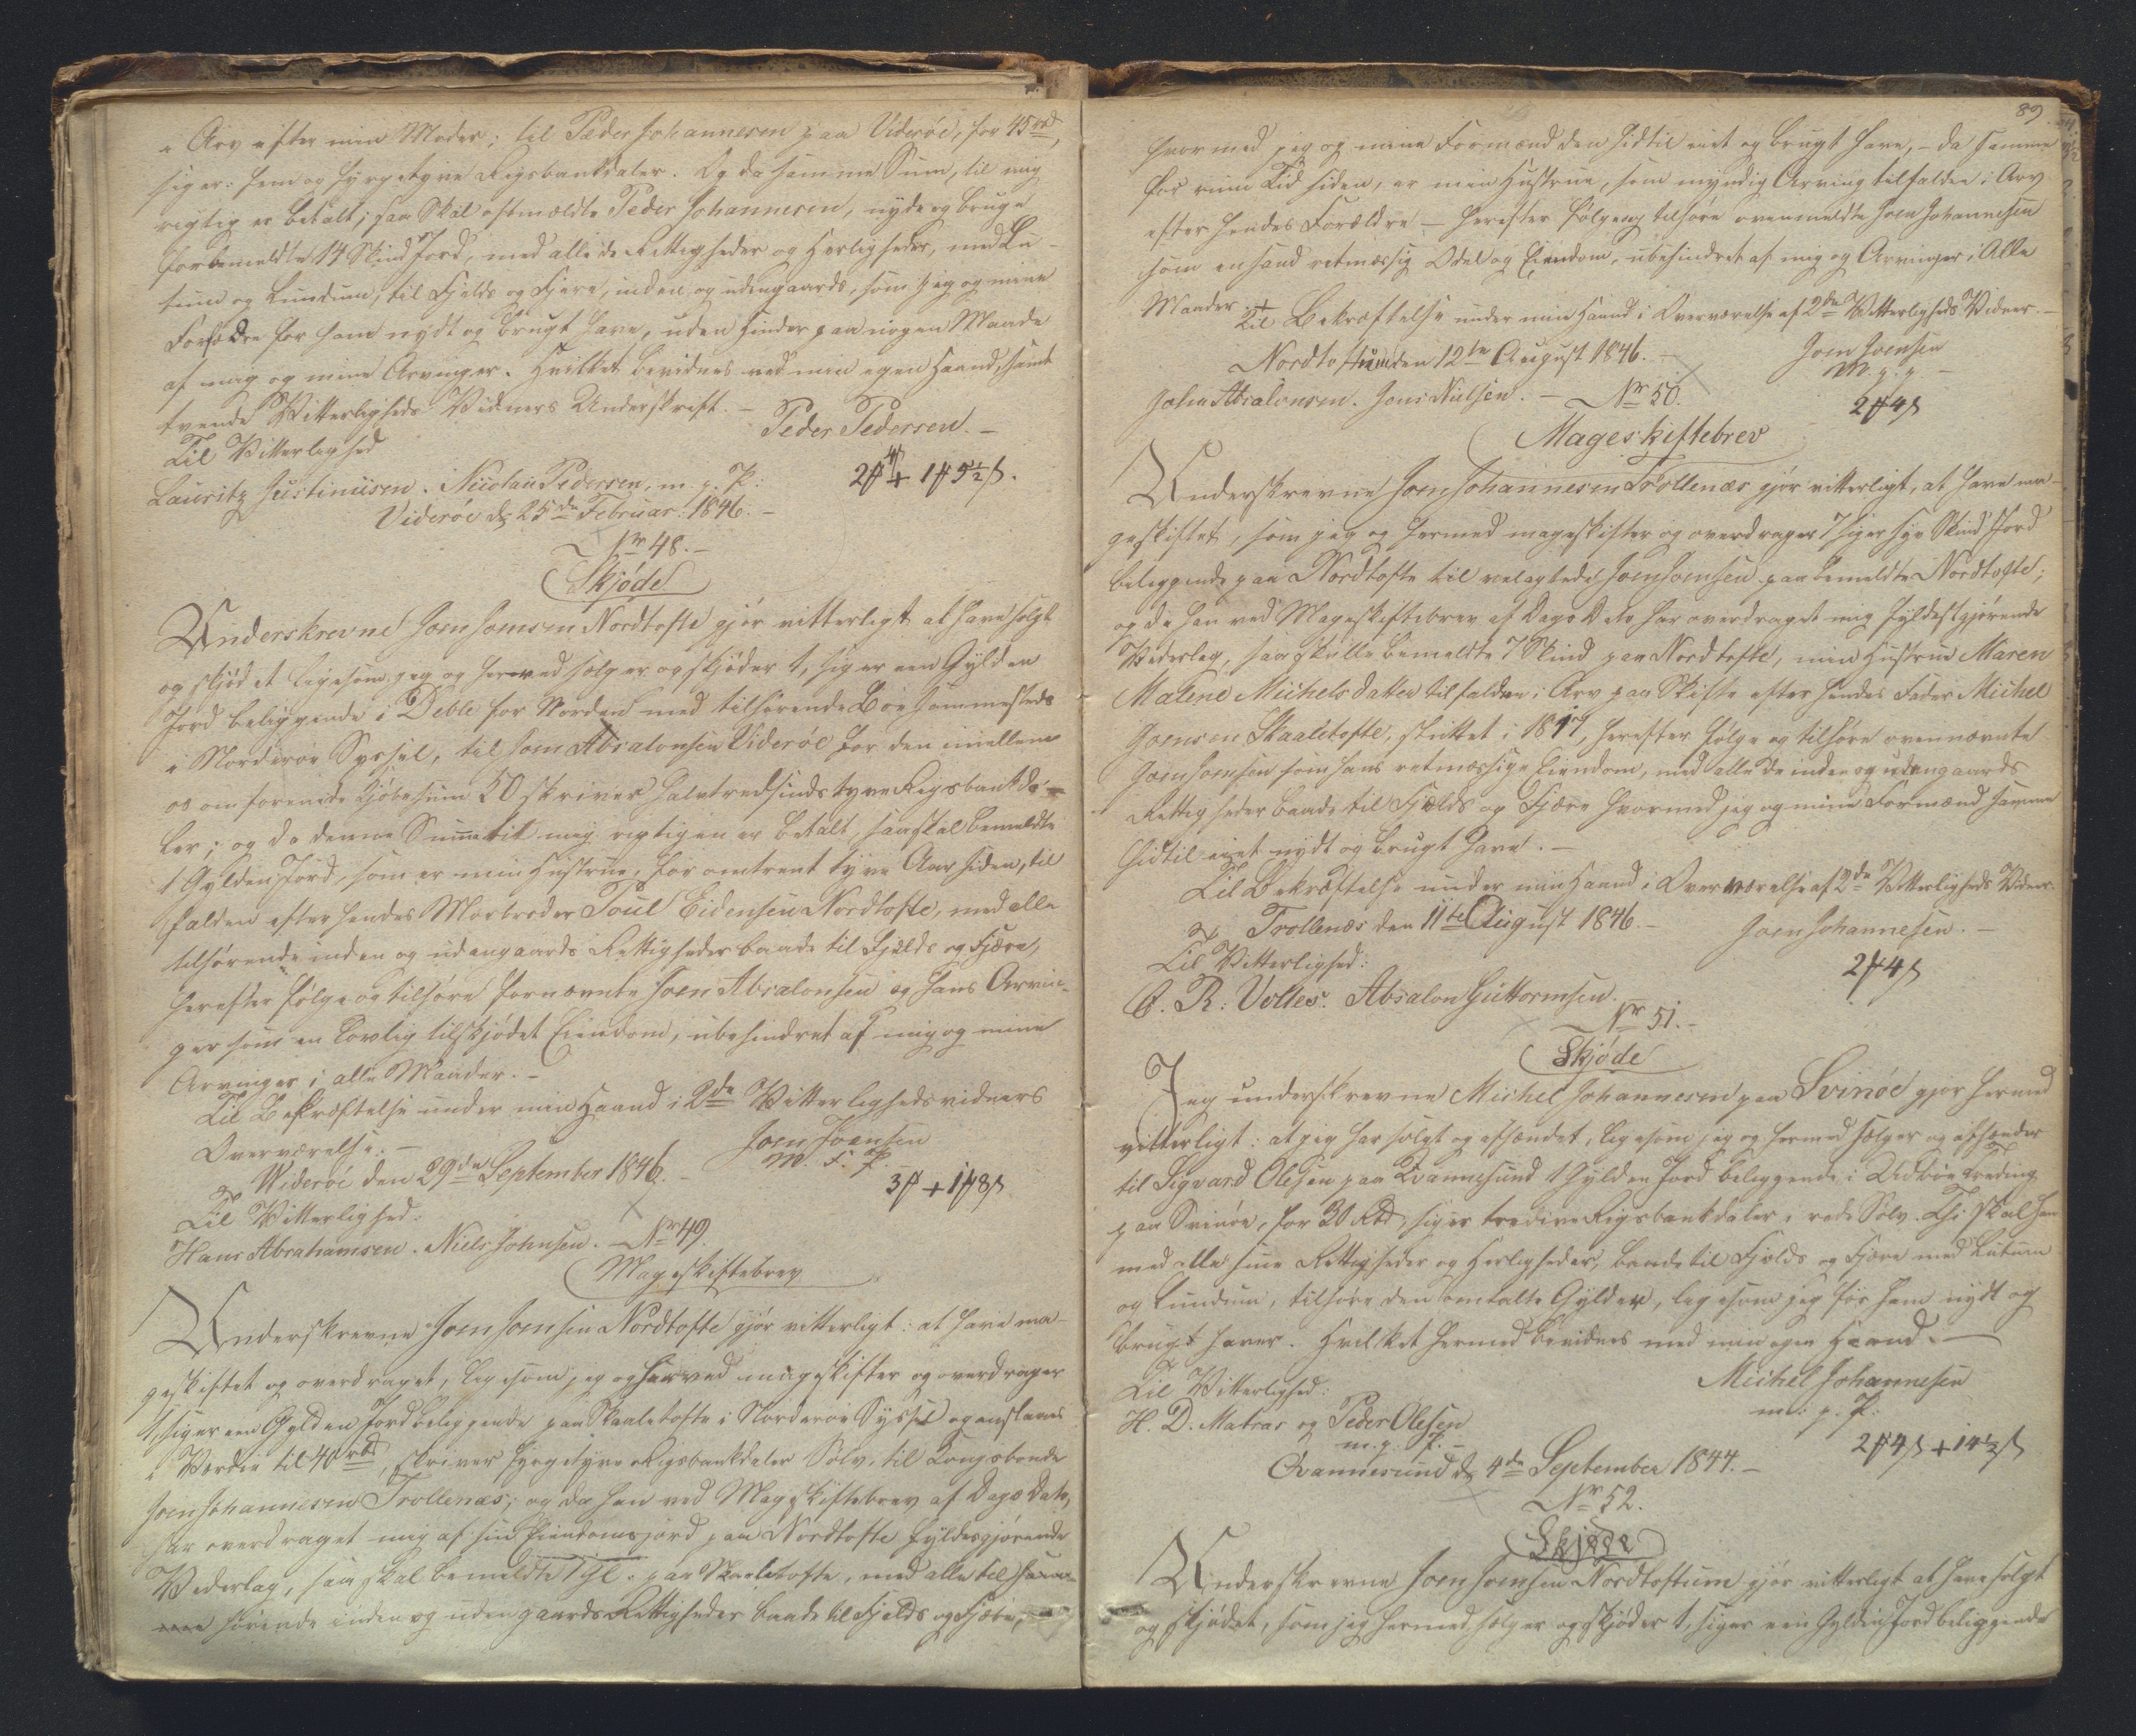 i Arv efter min Moder; til Peder Johannesen paa Viderøe, for 45 rbd,
siger: fem og fyrgetyve Rigsbankdaler. Og da samme Sum, til mig
rigtig er betalt; saa skal ommeldte Peder Johannesen, nyde og bruge
forbemeldte 14 Skind Jord, med alle de Rettigheder og Herligheder, med Lu-
tum og Lundum, til Fjelds og Fjære, inden og udengaards, som jeg og mine
Forfædre før ham nydt og brugt have, uden Hinder paa nogen Maade
af mig og mine Arvinger. Hvilket bevidnes ved min egen Haand, samt
tvende Vitterligheds Vidners Underskrift. -
Peder Pedersen. -
Til Vitterlighed
Lauritz Justinussen. Nicolai Pedersen, m. p. P:
Viderøe d. 25de Februar: 1846. -
Nr 48. -
Skjøde
Underskrevne Joen Joensen Nordtofte gjør vitterligt at have solgt
og skjødet ligesom jeg og herved sælger og skjøder 1, siger een Gylden
Jord beliggende i Deble for Norden med tilhørende Bøe sammesteds
i Norderøe Syssel, til Joen Absalonsen Viderøe for den imellem
os omforenede Kjøbesum 50 skriver halvtredsindstyve Rigsbankda-
ler; og da denne Summa til mig rigtigen er betalt, saa skal bemeldte
1 Gylden Jord, som er min Hustrue, for omtrent tyve Aar siden, til
falden efter hendes Morbroder Poul Eidensen Nordtofte, med alle
tilhørende inden og udengaards Rettigheder baade til Fjelds og Fjære,
herefter følge og tilhøre fornævnte Joen Absalonsen og hans Arvin-
ger som en lovlig tilskjødet Eiendom, ubehindret af mig og mine
Arvinger i alle Maader. -
Til Bekræftelse under min Haand i 2de Vitterlighedsvidners
Overværelse. -
Joen Joensen
m. f. P.
Widerøe den 29de September 1846. -
Til Vitterlighed:
Hans Abrahamsen. Niels Johnsen. - Nr 49.
Mageskiftebrev
Underskrevne Joen Joensen Nordtofte gjør vitterligt: at have ma-
geskiftet og overdraget, ligesom jeg og herved mageskifter og overdrager
1, siger een Gylden Jord beliggende paa Skaaletofte i Norderøe Syssel og anslaaes
i Værdie til 40 rbd, skriver fyrgetyve Rigsbankdaler Sølv, til Kongsbonde
Joen Johannesen Trollenæs; og da han ved Mageskiftebrev af Dags Dato,
har overdraget mig af sin Eiendomsjord paa Nordtofte fyldesgjørende
Vederlag, saa skal bemeldte 1 Gl. paa Skaaletofte, med alle til samme
hørende inden og udengaards Rettigheder baade til Fjelds og Fjære,
89.
hvormed jeg og mine Formænd den hidtil eiet og brugt have, - da samme
for num Tid siden, er min Hustrue, som myndig Arving tilfalden i Arv
efter hendes Forældre. - Herefter følge og tilhøre ovenmeldte Joen Johannesen
som en sand retmæssig Odel og Eiendom, ubehindret af mig og Arvinger i Alle
Maader. - Til Bekræftelse under min Haand i Overværelse af 2de Vitterligheds Vidner. -
Nordtoftum den 12te August 1846. -
Joen Joensen
m. p. p -
John Absalonsen. Jens Nielsen. - Nr 50.
Mageskiftebrev
Underskrevne Joen Johannesen Trollenæs gjør vitterligt, at have ma-
geskiftet, som jeg og hermed mageskifter og overdrager 7 siger syv Skind Jord
beliggende paa Nordtofte til velagtede Joen Joensen paa bemeldte Nordtofte;
og da han ved Mageskiftebrev af Dags Dato har overdraget mig fyldestgjørende
Vederlag, saa skulle bemeldte 7 Skind paa Nordtofte, min Hustrue Maren
Malene Michelsdatter tilfalden i Arv paa Skifte efter hendes Fader Michel
Joensen Skaaletofte, skiftet i 1817, herefter følge og tilhøre ovennævnte
Joen Joensen som hans retmæssige Eiendom, med alle de inden og udengaards
Rettigheder baade til Fjelds og Fjære hvormed jeg og mine Formænd samme
hidtil eiet nydt og brugt have. -
Til Bekræftelse under min Haand i Overværelse af 2de Vitterligheds Vidner.
Trollenæs den 11te August 1846. -
Joen Johannesen. -
Til Vitterlighed:
Absalon Guttormsen.
Nr 51. -
Skjøde
Jeg underskrevne Michel Johannesen paa Svinøe gjør herved
vitterligt: at jeg har solgt og afhændet, ligesom jeg og hermed sælger og afhænder
til Sigvard Olesen paa Kvannesund 1 Gylden Jord beliggende i
paa Svinøe, for 30 Rbd, siger tredive Rigsbankdaler i rede Sølv. Thi skal han
med alle sine Rettigheder og Herligheder, baade til Fjelds og Fjære med Lutum
og Lundum, tilhøre den omtalte Gylden, ligesom jeg før ham nydt og
brugt haver. Hvilket hermed bevidnes med min egen Haand. -
Michel Johannesen
m: p. P:
Til Vitterlighed:
H. D. Matras og Peder Olesen
m. p. P. -
Qvannesund d. 4de September 1844. -
Nr 52.
Skjøde
Underskrevne Joen Joensen Nordtoftum gjør vitterligt at have solgt
og skjødet, som jeg hermed sælger og skjøder 1, siger een Gylden Jord beliggende